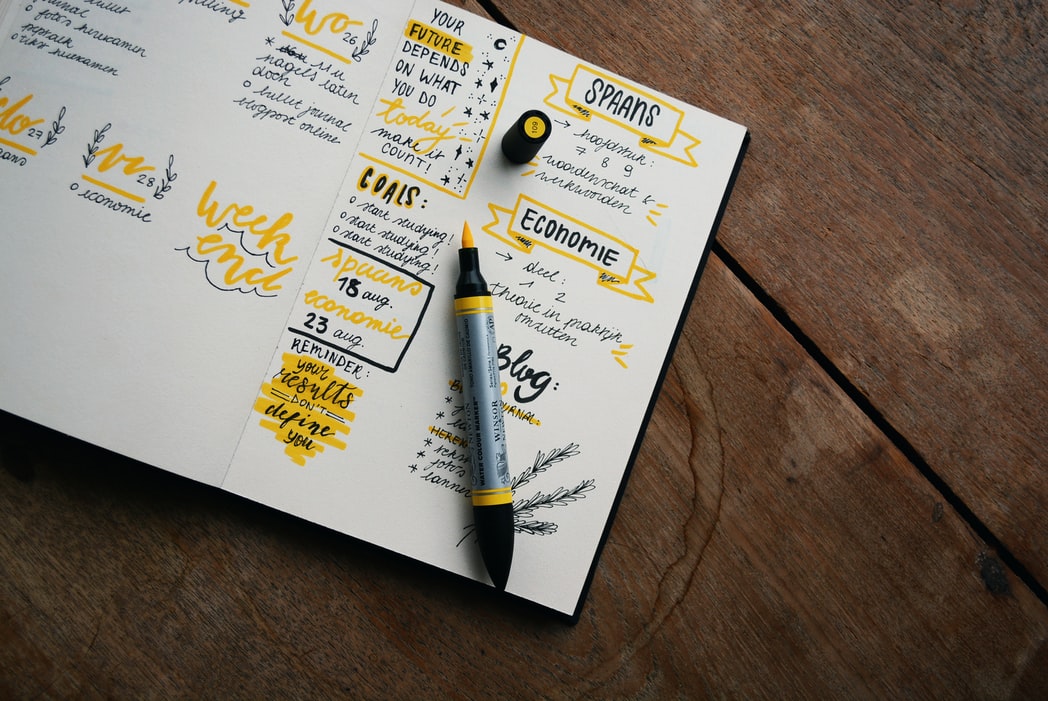 journal
o foto's herexamen
o inkt herexamen
wo 26
* 11u
nagels laten
doen
o bullet journal
blogpost online
do 27
vr 28
o economie
week
end
YOUR
FUTURE
DEPENDS
ON WHAT
YOU DO
today!
make it
COUNT!
GOALS:
o start studying!
o start studying!
o start studying!
spaans
18 aug.
economie
23 aug.
REMINDER:
your
results
DON'T
define
you
SPAANS
→ hoofdstuk:
7 8 9
woordenschat &
werkwoorden
ECONOMIE
→ deel:
1 2
theorie in praktijk
omzetten
Blog:
109
WATER COLOUR MARKER
WINSOR
NEWTON